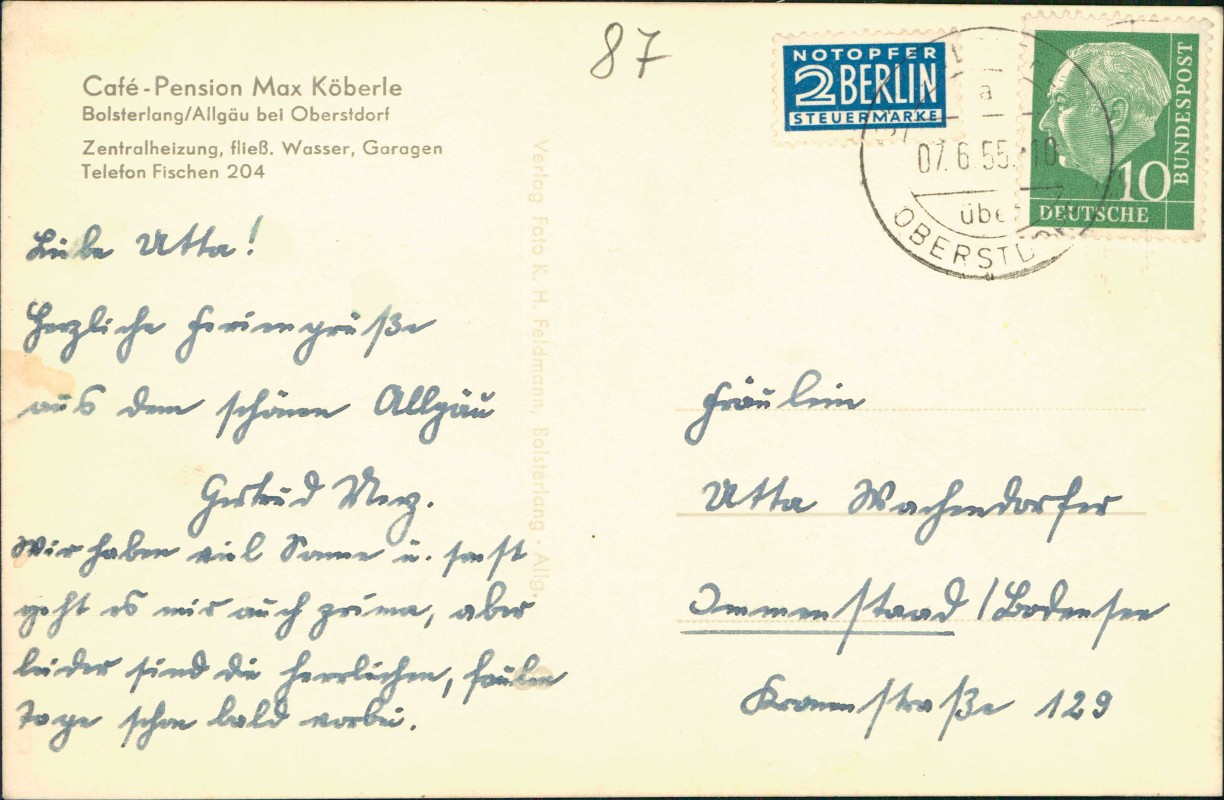 87
NOTOPFER
2 BERLIN
STEUERMARKE
BUNDESPOST
10
DEUTSCHE
a
07.6.55.-10
über
OBERSTDORF
Café-Pension Max Köberle
Bolsterlang/Allgäu bei Oberstdorf
Zentralheizung, fließ. Wasser, Garagen
Telefon Fischen 204
Liebe Utta!
Herzliche Feriengrüße
aus dem schönen Allgäu
Gertrud Merz.
Wir haben viel Sonne u. sonst
geht es mir auch prima, aber
leider sind die herrlichen, faulen
Tage schon bald vorbei.
Verlag Foto K. H. Feldmann, Bolsterlang · Allg.
Fräulein
Utta Wachendorfer
Immenstaad / Bodensee
Kronenstraße 129